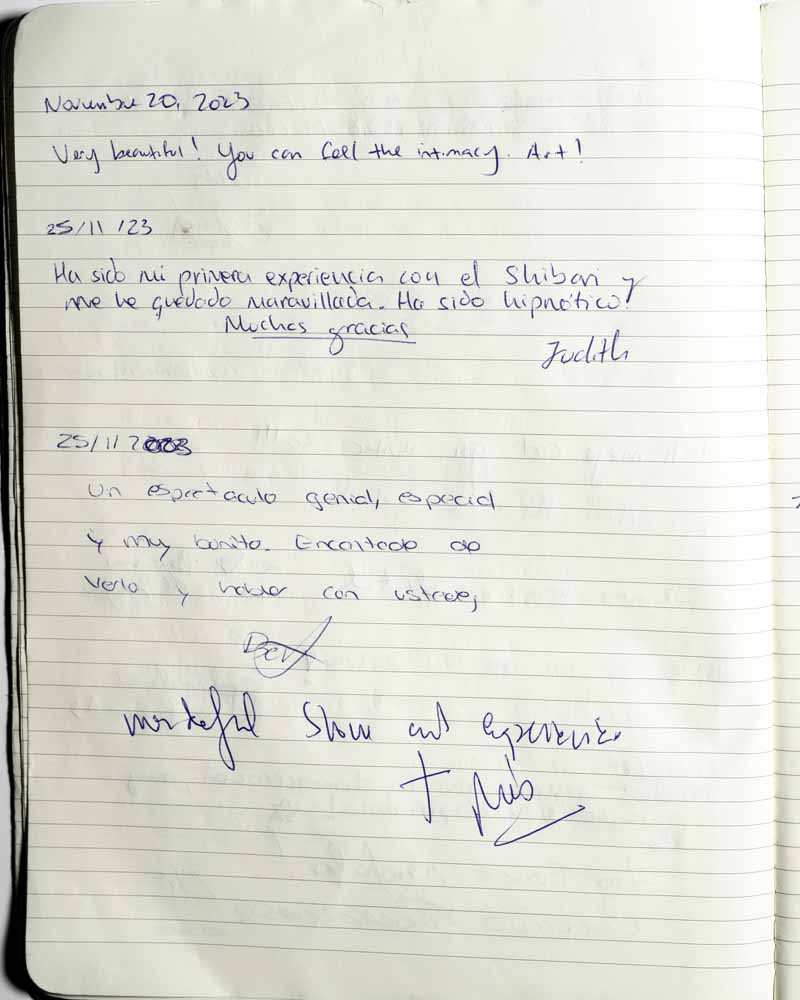 November 20, 2023
Very beautiful! You can feel the intimacy. Art!
25/11/23
Ha sido mi primera experiencia con el Shibari y
me he quedado maravillada. Ha sido hipnótico!
Muchas gracias
Judith
25/11 2023
Un espectaculo genial, especial
y muy bonito. Encantado de
verlo y hablar con ustedes
Show and experience